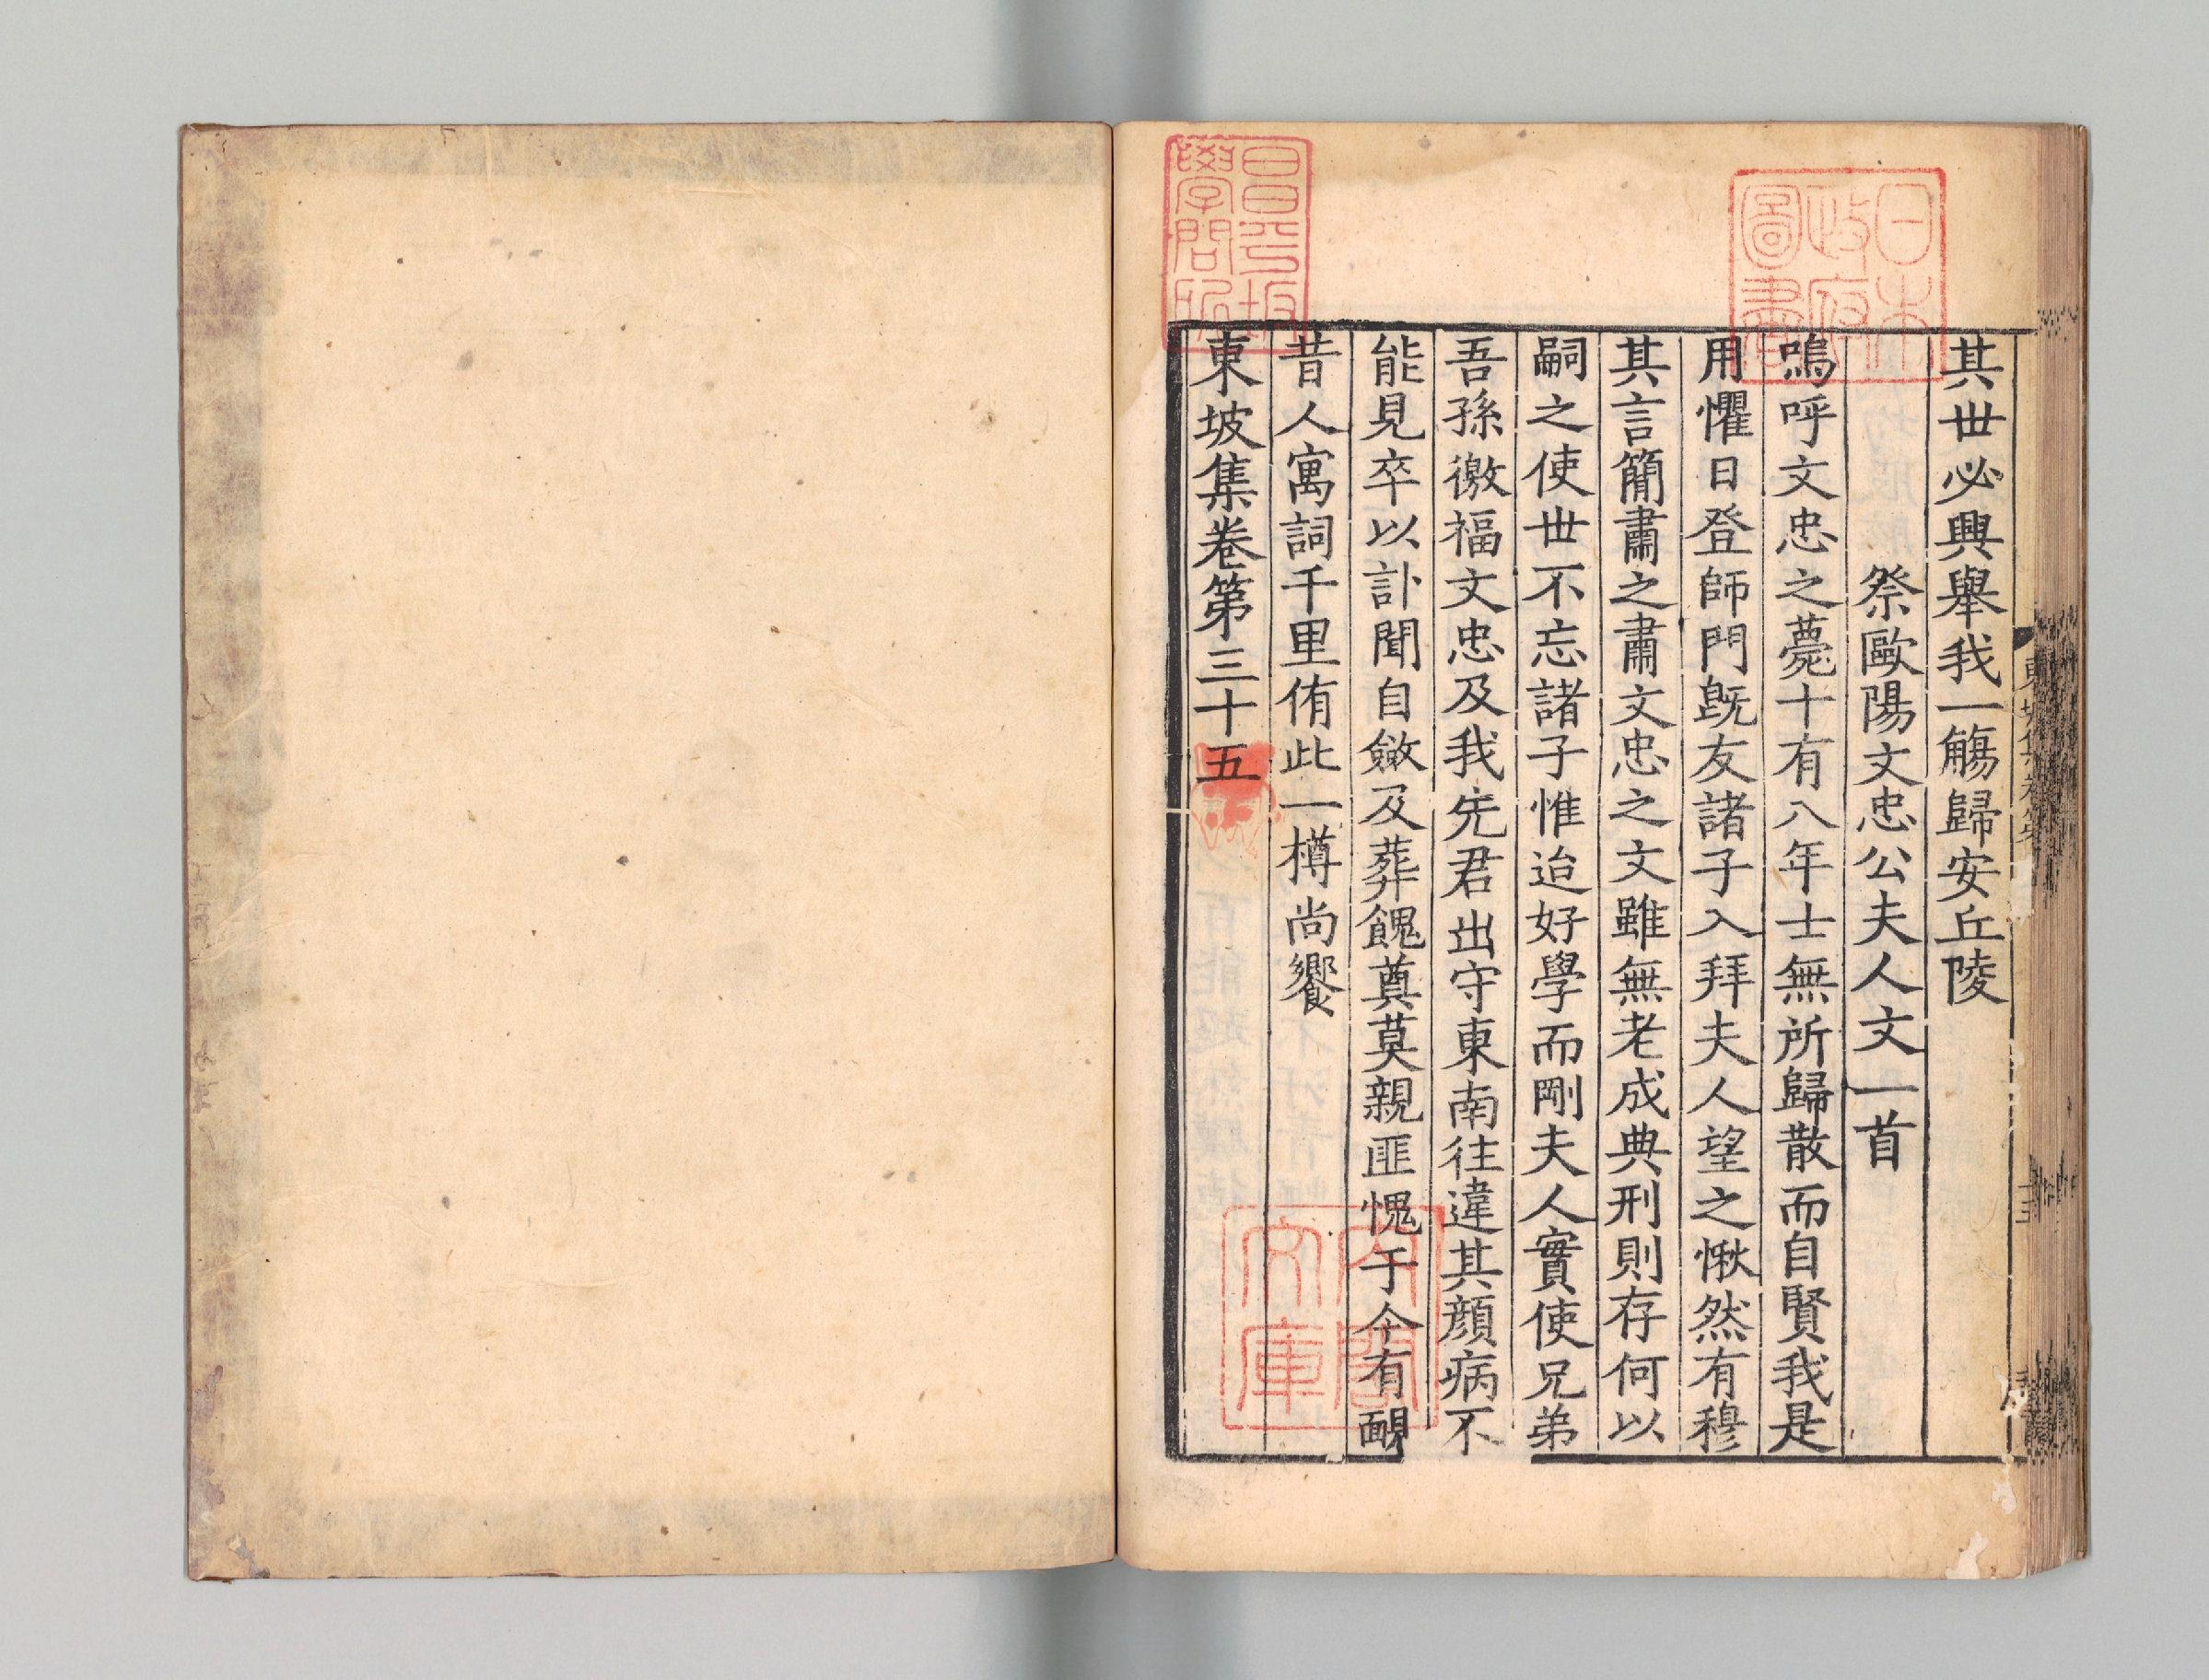 其世必興舉我一觴歸安丘陵
祭歐陽文忠公夫人文一首
嗚呼文忠之薨十有八年士無所歸散而自賢我是
用懼日登師門既友諸子入拜夫人望之愀然有穆
其言簡肅之肅文忠之文雖無老成典刑則存何以
嗣之使世不忘諸子惟迨好學而剛夫人實使兄弟
吾孫徼福文忠及我先君出守東南往違其顔病不
能見卒以訃聞自斂及葬餽奠莫親匪愧于今有靦
昔人寓詞千里侑此一樽尚饗
東坡集卷第三十五
日本政府圖書
昌平坂學問所
內閣文庫